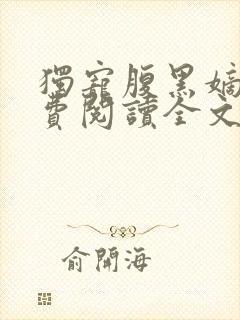 獨寵腹黑嫡
費閱讀全文
俞開海